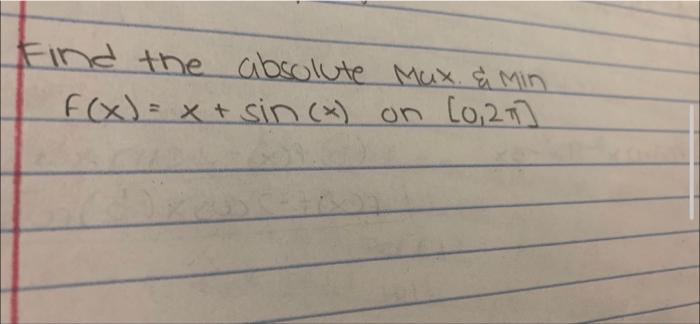 Find the absolute Max. & Min
f(x) = x + sin(x) on [0,2π]